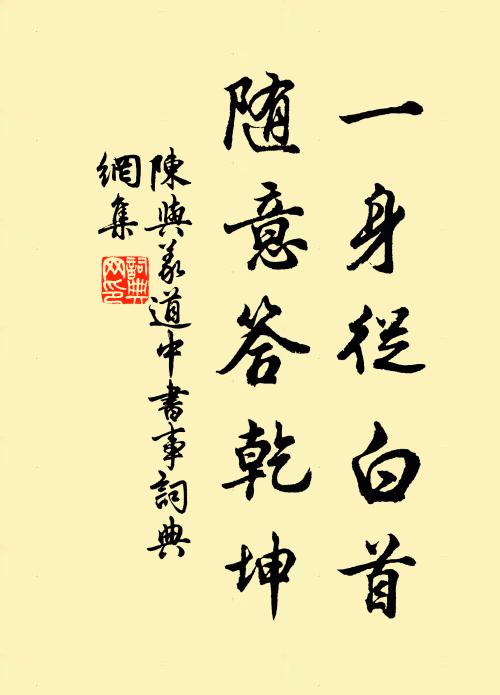 一身從白首
随意答乾坤
陳與義道中書事詞典
網集
詞典
网印